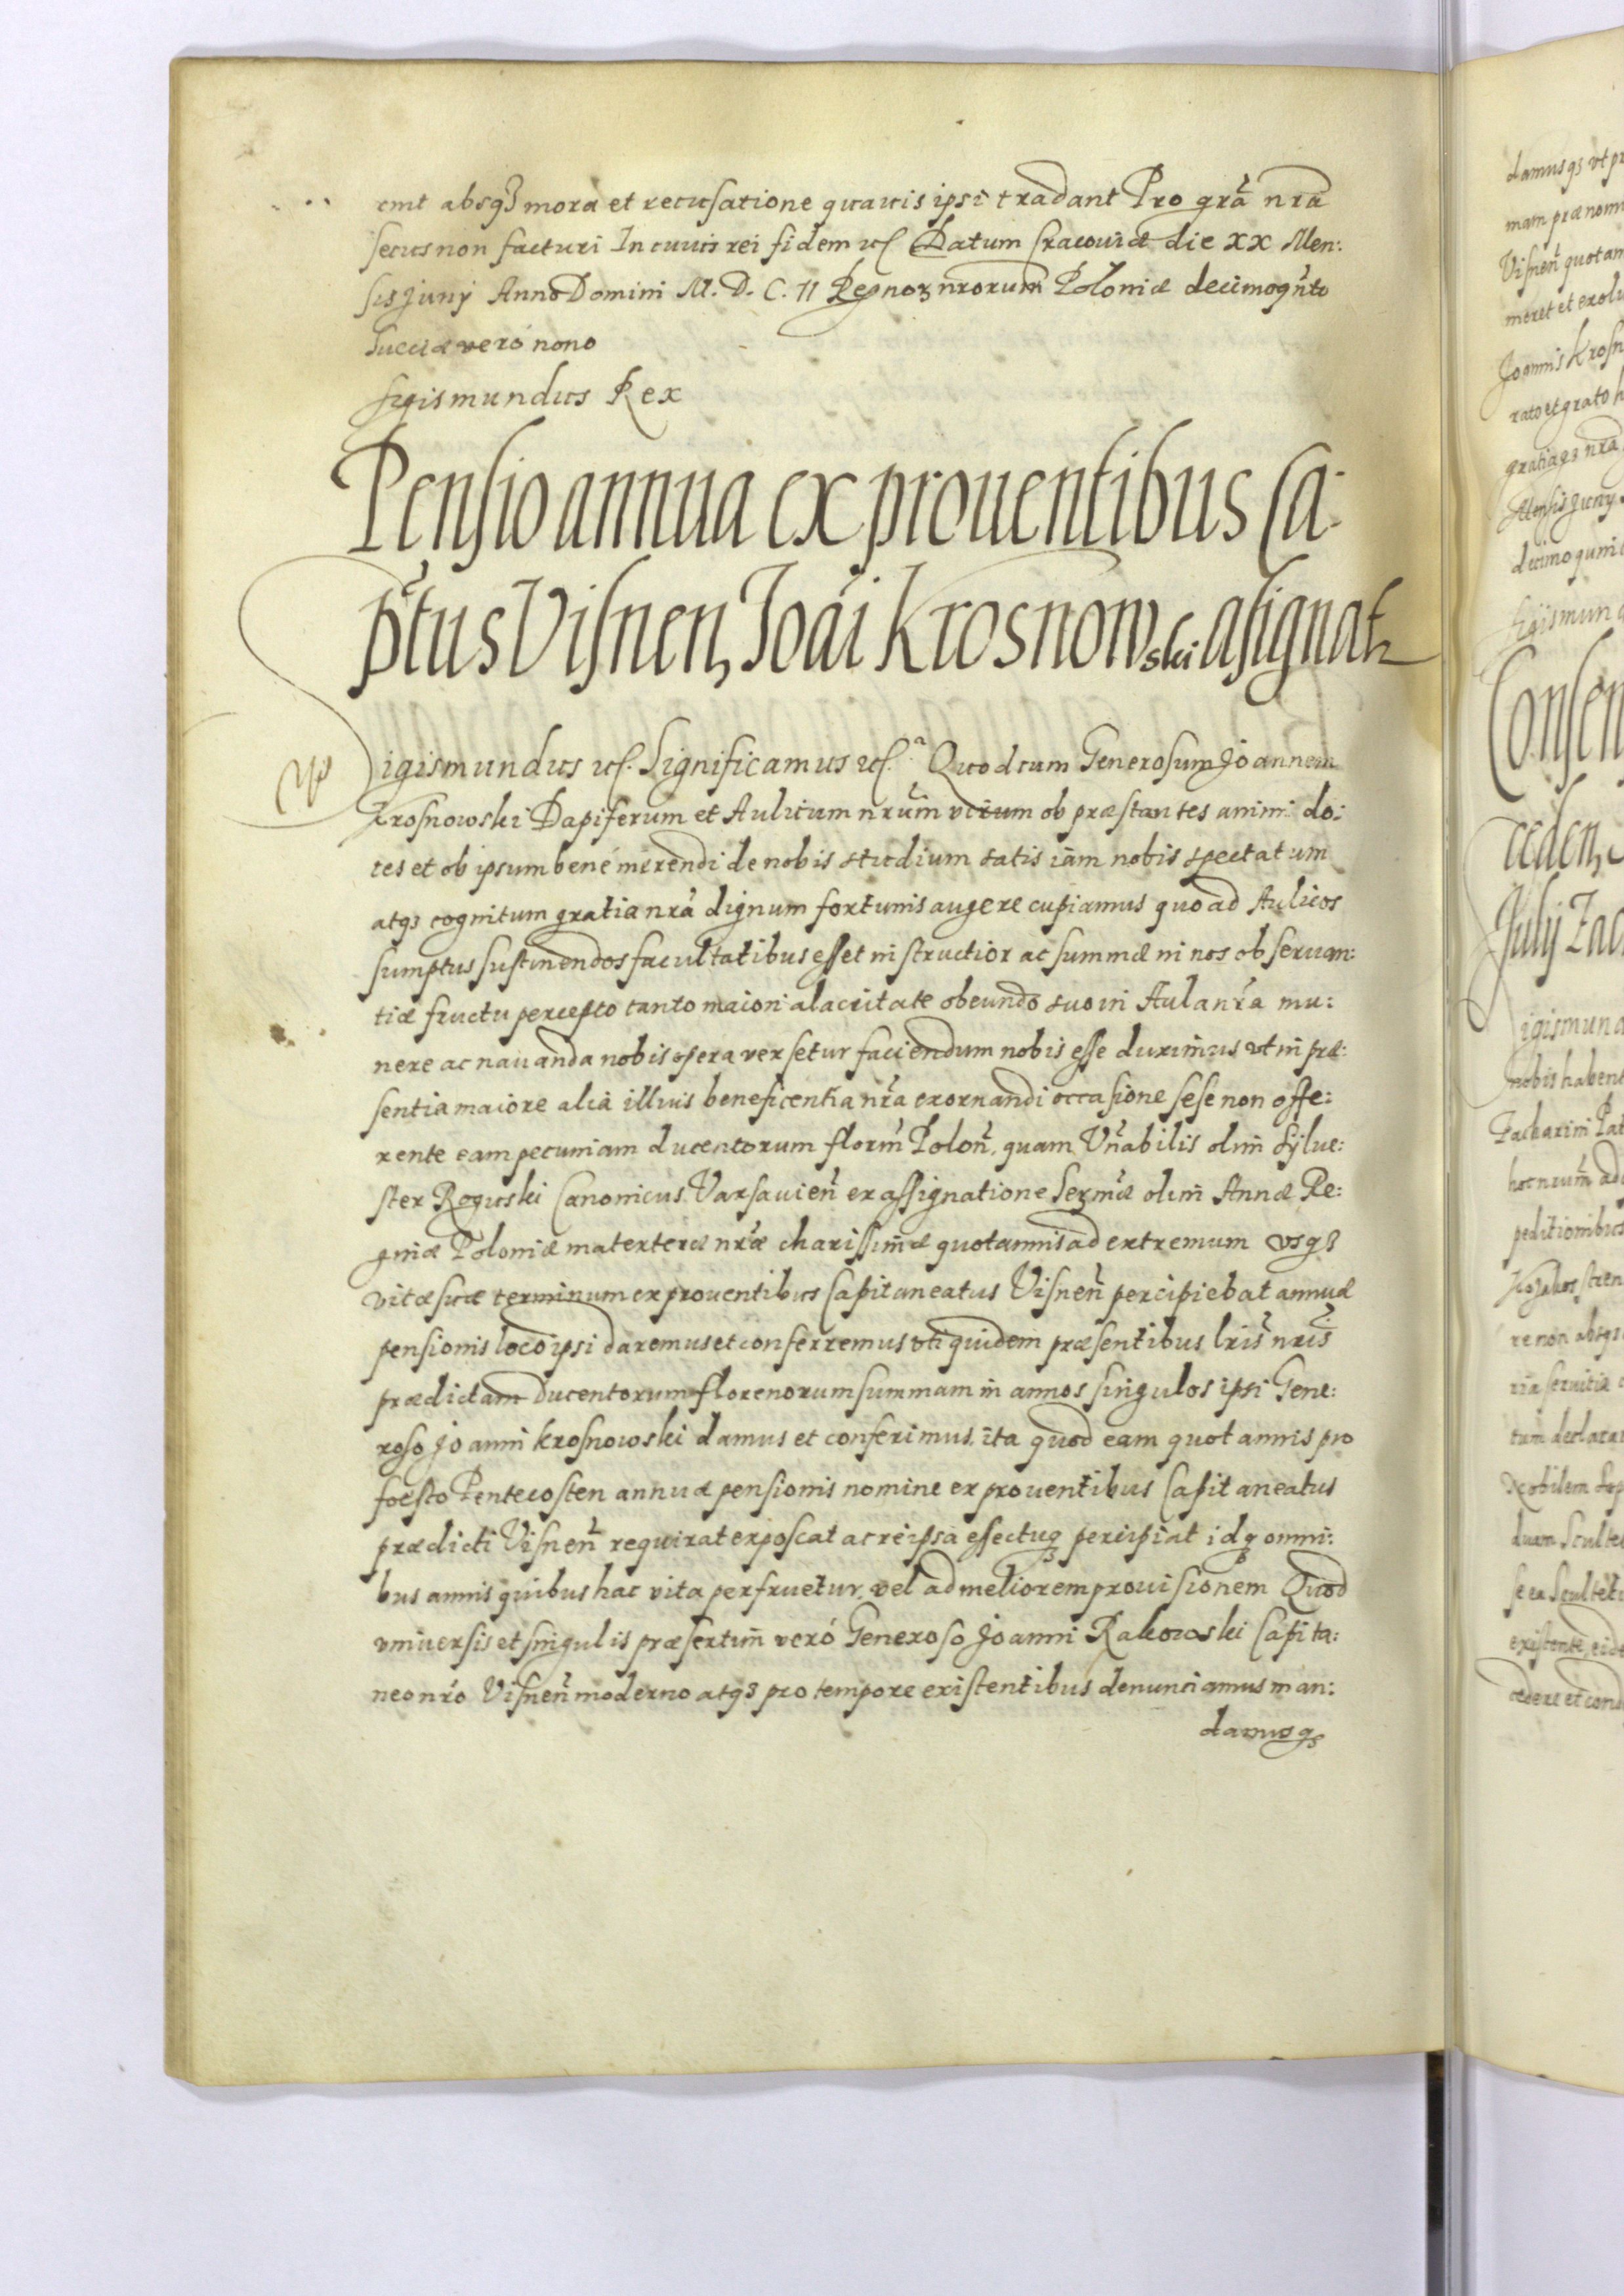 rint absq3 mora et recusatione quauis ipsi tradant Pro gra nra
secus non facturi In cuius rei fidem etc Datum Cracouiæ die XX Men:
sis Juny Anno Domini M. D. C. II Regnor nrorum Poloniæ decimoqnto
Sueciæ vero nono
Sigismundus Rex
Pensio annua ex prouentibus Ca-
ptus Visnen, Joai Krosnowski asignatr
Sigismundus etc. Significamus etc. Quod cum Generosum Joannem
Krosnowski Dapiferum et Aulicum nrum virum ob præstantes animi do:
tes et ob ipsum bené merendi de nobis studium satis iam nobis spectatum
atq3 cognitum gratia nrá dignum fortunis augere cupiamus quo ad Aulicos
sumptus sustinendos facultatibus esset instructior ac summæ in nos obseruan:
tiæ fructu percepto tanto maiori alacritate obeundo suo in Aula nra mu:
nere ac nauanda nobis opera versetur faciendum nobis esse duximus vt in præ:
sentia maiore aliá illius beneficentia nra exornandi occasione sese non offe:
rente eam pecuniam ducentorum florm Polon, quam Vnabilis olim Sylue:
ster Roguski Canonicus Varsauien ex assignatione Sermæ olim Annæ Re:
ginæ Poloniæ materteræ nræ charissimæ quotannis ad extremum vsq3
vitæ suæ terminum ex prouentibus Capitaneatus Visnen percipiebat annuæ
pensionis loco ipsi daremus et conferremus vti quidem præsentibus lris nris
prædictam Ducentorum florenorum summam in annos singulos ipsi Gene:
roso Joanni Krosnowski damus et conferimus, ita quod eam quotannis pro
foesto Pentecosten annuæ pensionis nomine ex prouentibus Capitaneatus
prædicti Visnen requirat exposcat ac reipsa effectuq3 percipiat idq3 omni:
bus annis quibus hac vita perfruetur, vel ad meliorem prouisionem Quod
vniuersis et singulis præsertim veró Generoso Joanni Rakowski Capita:
neo nro Visnen moderno atq3 pro tempore existentibus denunciamus man:
damusq3